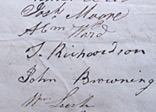 Josh Moore
Abm Ward
T. Richardson
John Browning
Wm